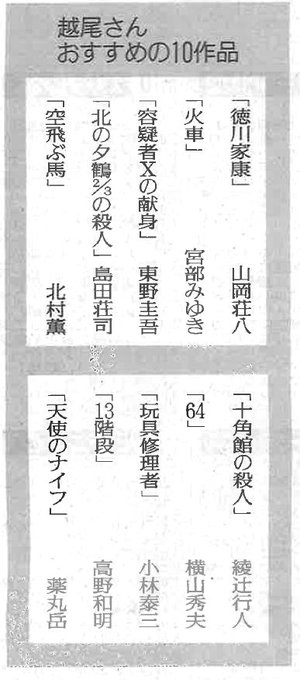 越尾さん
おすすめの10作品
「徳川家康」 山岡荘八
「火車」 宮部みゆき
「容疑者Xの献身」 東野圭吾
「北の夕鶴2/3の殺人」 島田荘司
「空飛ぶ馬」 北村薫
「十角館の殺人」 綾辻行人
「64」 横山秀夫
「玩具修理者」 小林泰三
「13階段」 高野和明
「天使のナイフ」 薬丸岳